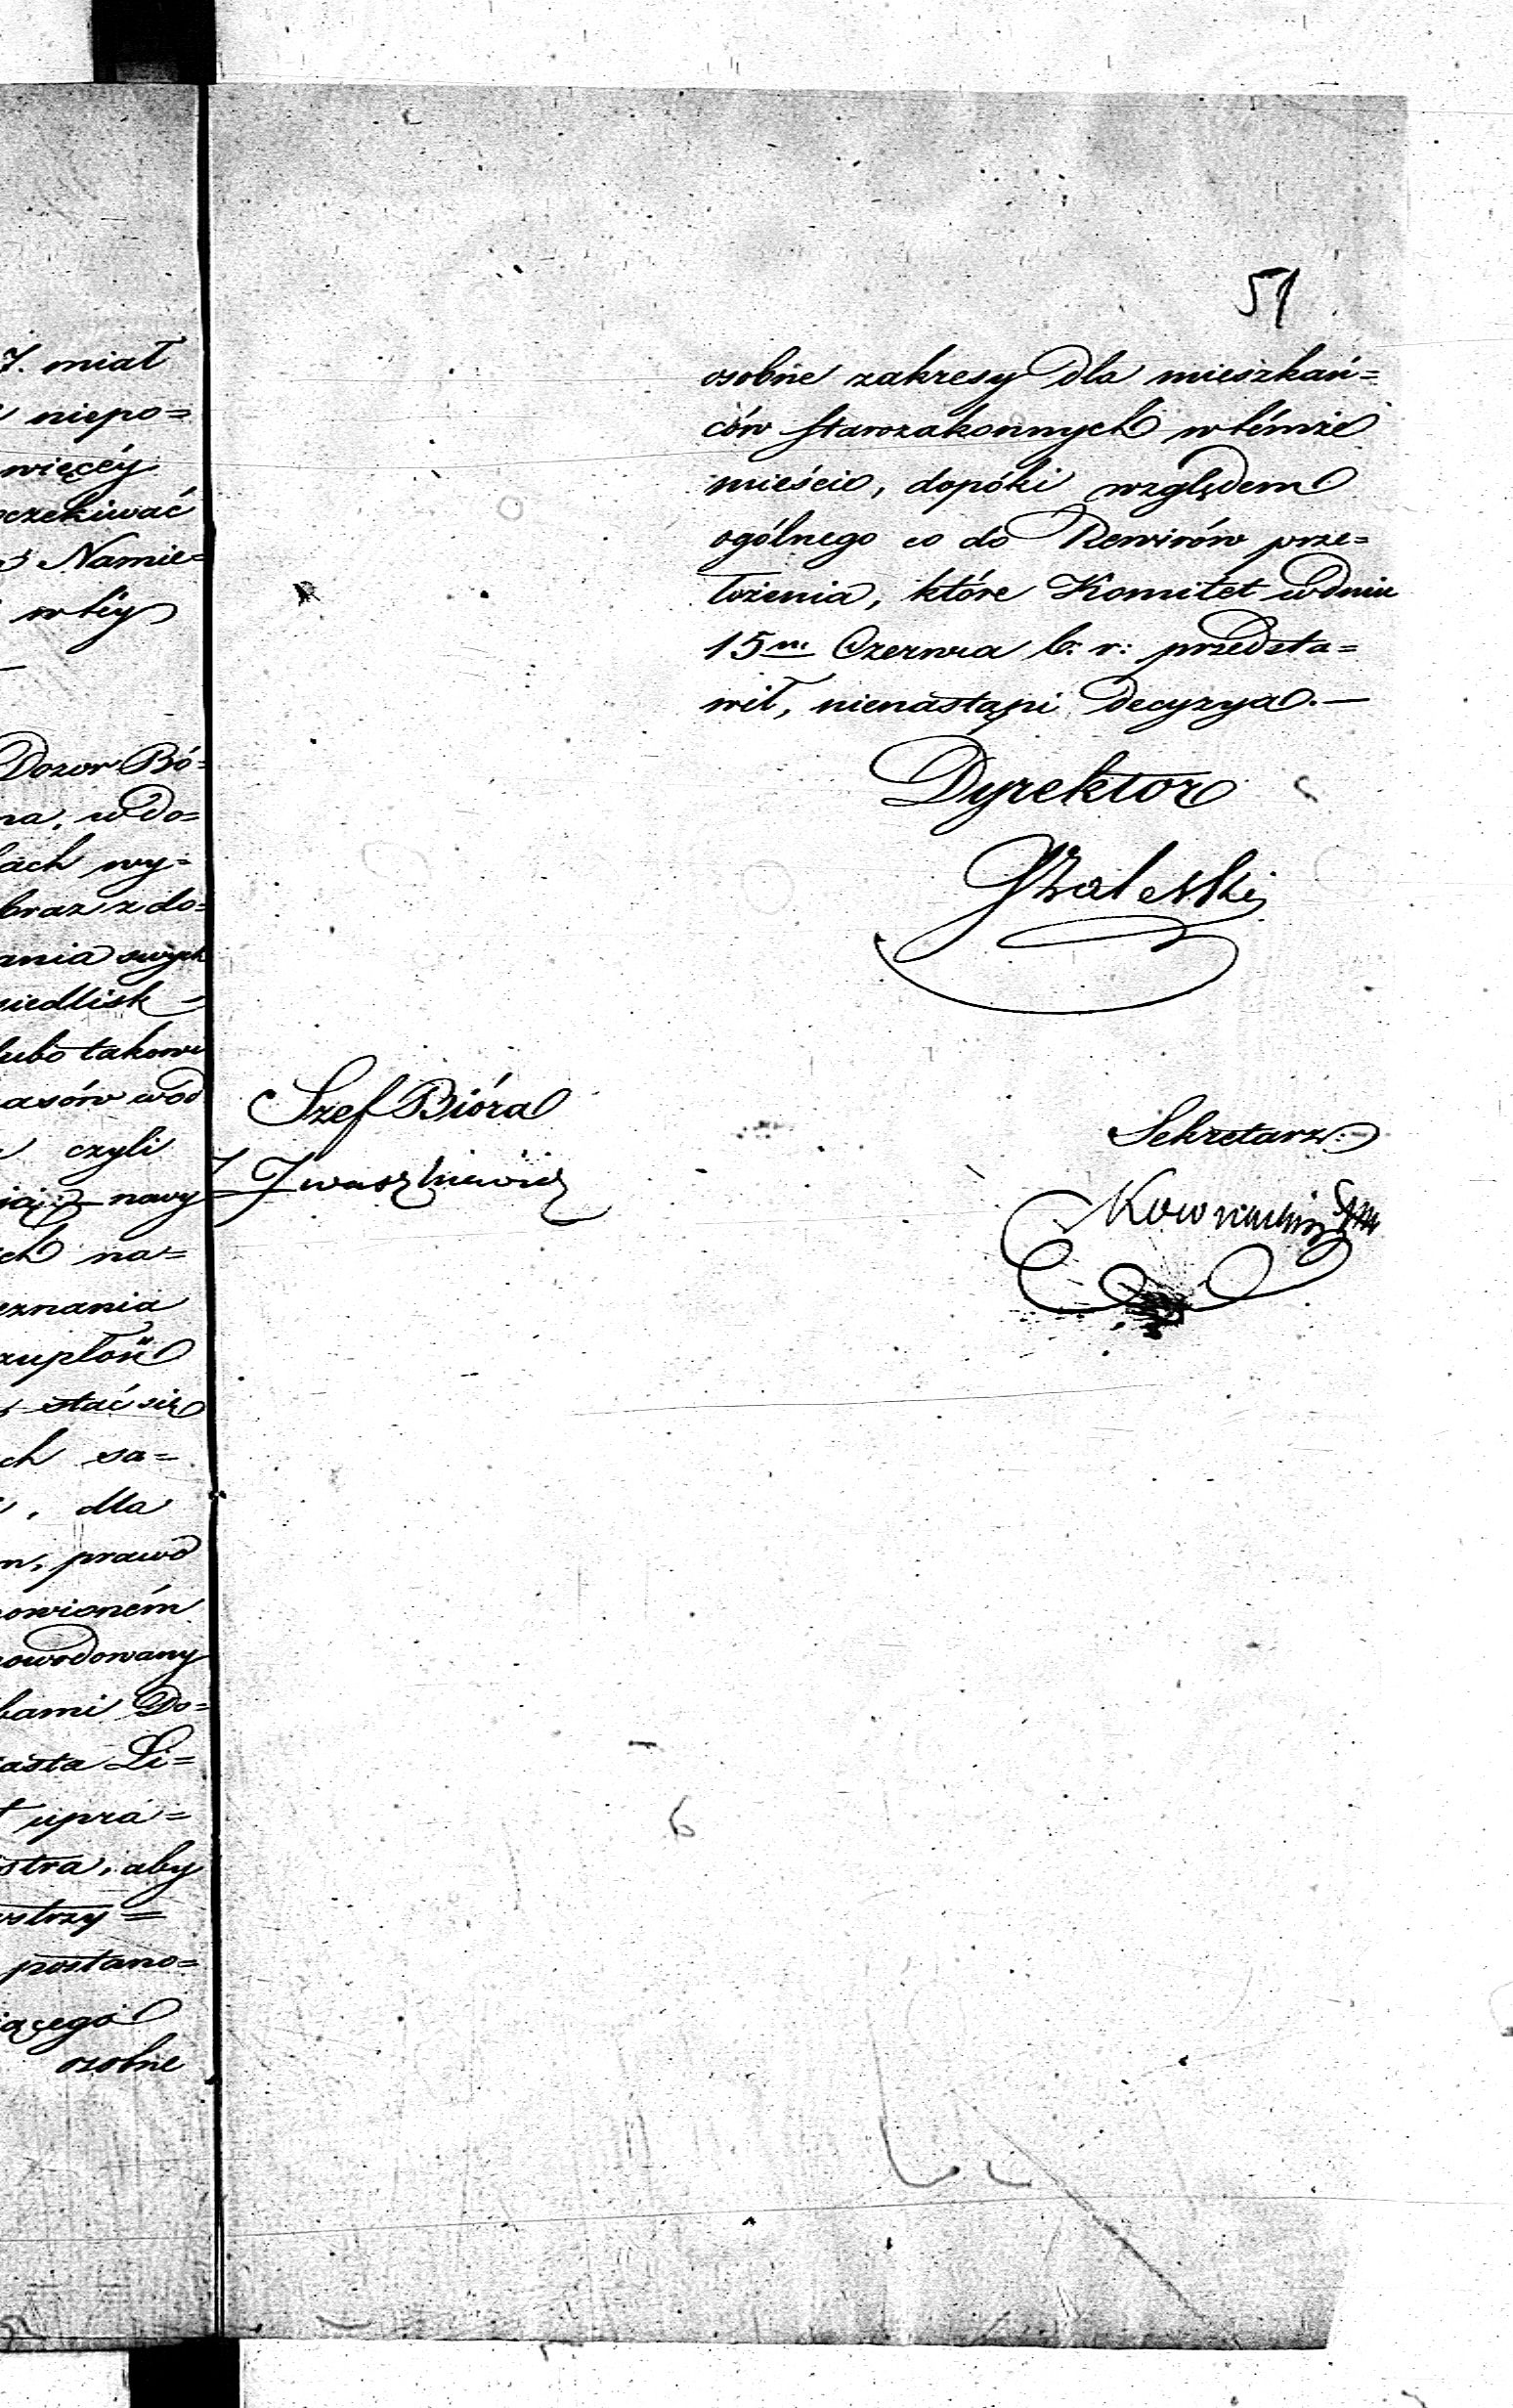 7. miał
niepo=
więcéy
oczekiwać
Namie=
w téy
Dozor Bó=
na, w do=
bach wy=
braz z do=
ania swych
siedlisk
lubo takowe
asów wód
czyli
nawy
ch na=
eznania
zupłoń
stać się
ch sa=
, dla
m, prawo
nowioném
powodowany
bami Do=
iasta Li=
ł upra=
stra, aby
wstrzy=
postano=
iącego
osobne
51
osobne zakresy dla mieszkań=
ców starozakonnych w témże
mieście, dopóki względem
ogólnego co do Rewirów prze=
łożenia, które Komitet w dniu
15m Czerwca b: r: przedsta=
wił, nienastąpi decyzya.—
Dyrektor
Zaleski
Szef Bióra
J Iwaszkiewicz
Sekretarz
6